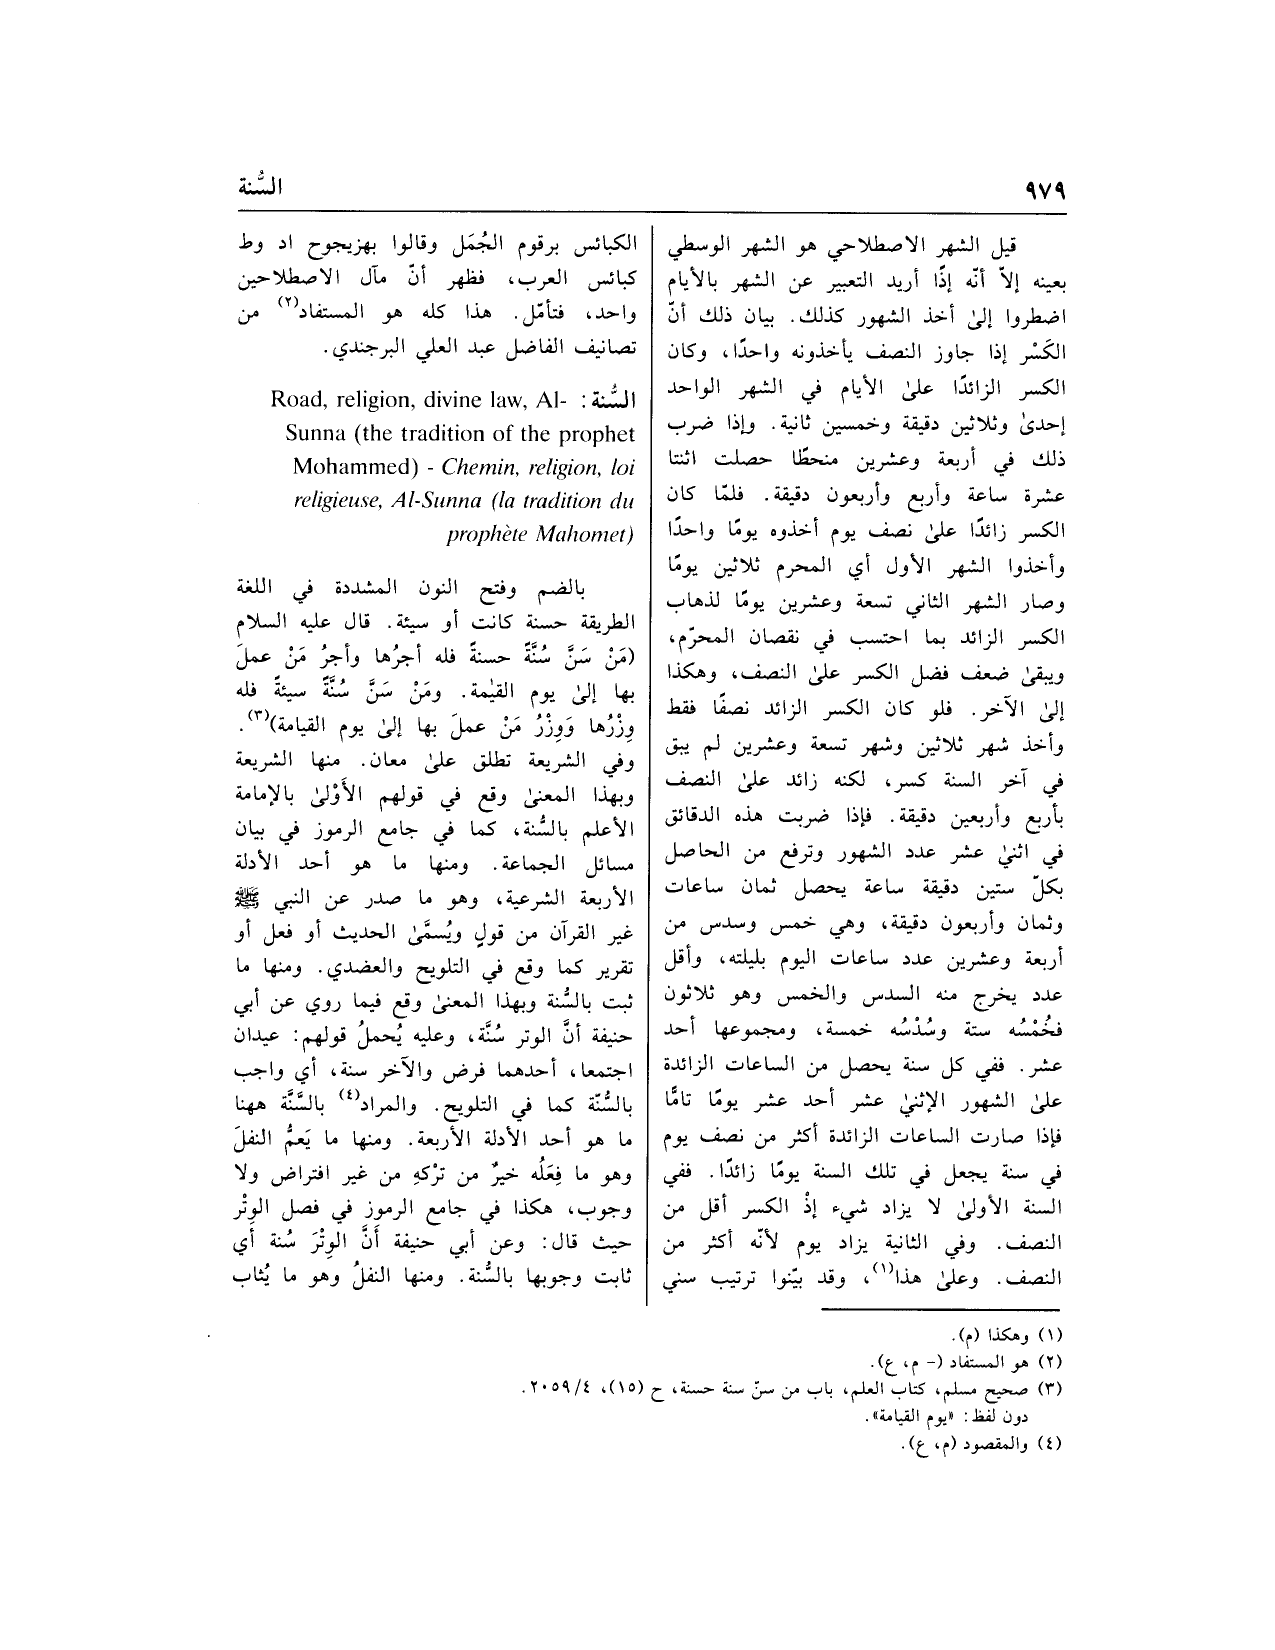 ٩٧٩
السُّنة
قيل الشهر الاصطلاحي هو الشهر الوسطي
بعينه إلاّ أنّه إذّا أريد التعبير عن الشهر بالأيام
اضطروا إلىٰ أخذ الشهور كذلك. بيان ذلك أنّ
الكَسْر إذا جاوز النصف يأخذونه واحدًا، وكان
الكسر الزائدًا علىٰ الأيام في الشهر الواحد
إحدىٰ وثلاثين دقيقة وخمسين ثانية. وإذا ضرب
ذلك في أربعة وعشرين منحطًا حصلت اثنتا
عشرة ساعة وأربع وأربعون دقيقة. فلمّا كان
الكسر زائدًا علىٰ نصف يوم أخذوه يومًا واحدًا
وأخذوا الشهر الأول أي المحرم ثلاثين يومًا
وصار الشهر الثاني تسعة وعشرين يومًا لذهاب
الكسر الزائد بما احتسب في نقصان المحرّم،
ويبقىٰ ضعف فضل الكسر علىٰ النصف، وهكذا
إلىٰ الآخر. فلو كان الكسر الزائد نصفًا فقط
وأخذ شهر ثلاثين وشهر تسعة وعشرين لم يبق
في آخر السنة كسر، لكنه زائد علىٰ النصف
بأربع وأربعين دقيقة. فإذا ضربت هذه الدقائق
في اثنيٰ عشر عدد الشهور وترفع من الحاصل
بكلّ ستين دقيقة ساعة يحصل ثمان ساعات
وثمان وأربعون دقيقة، وهي خمس وسدس من
أربعة وعشرين عدد ساعات اليوم بليلته، وأقل
عدد يخرج منه السدس والخمس وهو ثلاثون
فخُمْسُه ستة وسُدْسُه خمسة، ومجموعها أحد
عشر. ففي كل سنة يحصل من الساعات الزائدة
علىٰ الشهور الإثنيٰ عشر أحد عشر يومًا تامًّا
فإذا صارت الساعات الزائدة أكثر من نصف يوم
في سنة يجعل في تلك السنة يومًا زائدًا. ففي
السنة الأولىٰ لا يزاد شيء إذْ الكسر أقل من
النصف. وفي الثانية يزاد يوم لأنّه أكثر من
النصف. وعلىٰ هذا(١)، وقد بيّنوا ترتيب سني
الكبائس برقوم الجُمَل وقالوا بهزيجوح اد وط
كبائس العرب، فظهر أنّ مآل الاصطلاحين
واحد، فتأمّل. هذا كله هو المستفاد(٢) من
تصانيف الفاضل عبد العلي البرجندي.
السُّنة: Road, religion, divine law, Al-
Sunna (the tradition of the prophet
Mohammed) - Chemin, religion, loi
religieuse, Al-Sunna (la tradition du
prophète Mahomet)
بالضم وفتح النون المشددة في اللغة
الطريقة حسنة كانت أو سيئة. قال عليه السلام
(مَنْ سَنَّ سُنَّةً حسنةً فله أجرُها وأجرُ مَنْ عملَ
بها إلىٰ يوم القيٰمة. ومَنْ سَنَّ سُنَّةً سيئةً فله
وِزْرُها وَوِزْرُ مَنْ عملَ بها إلىٰ يوم القيامة)(٣).
وفي الشريعة تطلق علىٰ معان. منها الشريعة
وبهذا المعنىٰ وقع في قولهم الأَوْلىٰ بالإمامة
الأعلم بالسُّنة، كما في جامع الرموز في بيان
مسائل الجماعة. ومنها ما هو أحد الأدلة
الأربعة الشرعية، وهو ما صدر عن النبي ﷺ
غير القرآن من قولٍ ويُسمَّىٰ الحديث أو فعل أو
تقرير كما وقع في التلويح والعضدي. ومنها ما
ثبت بالسُّنة وبهذا المعنىٰ وقع فيما روي عن أبي
حنيفة أنَّ الوتر سُنَّة، وعليه يُحملُ قولهم: عيدان
اجتمعا، أحدهما فرض والآخر سنة، أي واجب
بالسُّنّة كما في التلويح. والمراد(٤) بالسَّنَّة ههنا
ما هو أحد الأدلة الأربعة. ومنها ما يَعمُّ النفلَ
وهو ما فِعَلُه خيرٌ من ترْكهِ من غير افتراض ولا
وجوب، هكذا في جامع الرموز في فصل الوِتْر
حيث قال: وعن أبي حنيفة أَنَّ الوِتْرَ سُنة أي
ثابت وجوبها بالسُّنة. ومنها النفلُ وهو ما يُثاب
(١) وهكذا (م).
(٢) هو المستفاد (- م، ع).
(٣) صحيح مسلم، كتاب العلم، باب من سنّ سنة حسنة، ح (١٥)، ٢٠٥٩/٤.
دون لفظ: «يوم القيامة».
(٤) والمقصود (م، ع).